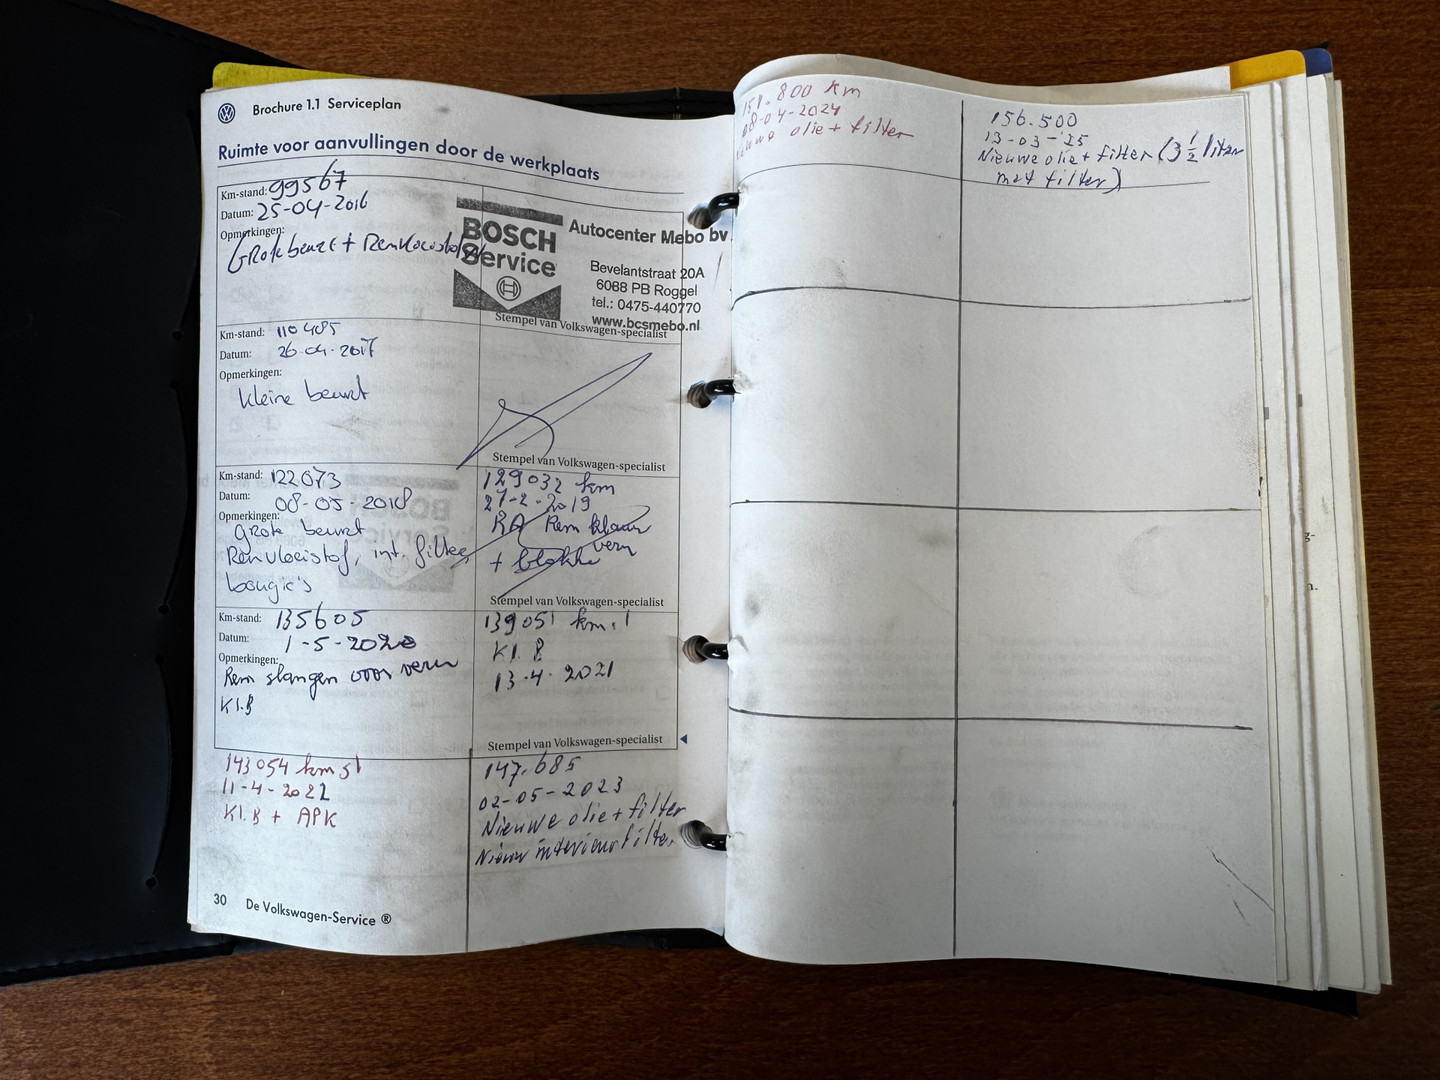 Brochure 1.1 Serviceplan
Ruimte voor aanvullingen door de werkplaats
Km-stand: 99567
Datum: 25-04-2016
Opmerkingen:
Grote beurt + Remvloeistof
BOSCH
Service
Autocenter Mebo bv
Bevelantstraat 20A
6088 PB Roggel
tel.: 0475-440770
www.bcsmebo.nl
Stempel van Volkswagen-specialist
Km-stand: 110485
Datum: 26-04-2017
Opmerkingen:
Kleine beurt
Stempel van Volkswagen-specialist
Km-stand: 122073
Datum: 08-05-2018
Opmerkingen:
grote beurt
Remvloeistof, int. filter
bougie's
129032 km
27-2-2019
RA Rem klauw
+ blokken vern
Stempel van Volkswagen-specialist
Km-stand: 135605
Datum: 1-5-2020
Opmerkingen:
Rem slangen voor vern
Kl.B
139051 km.
Kl. B
13-4-2021
Stempel van Volkswagen-specialist
143054 km st
11-4-2022
Kl.B + APK
147.685
02-05-2023
Nieuwe olie + filter
Nieuw interieurfilter
30 De Volkswagen-Service ®
151.800 km
08-04-2024
Nieuwe olie + filter
156.500
13-03-'25
Nieuwe olie + filter (3 1/2 liter
met filter)